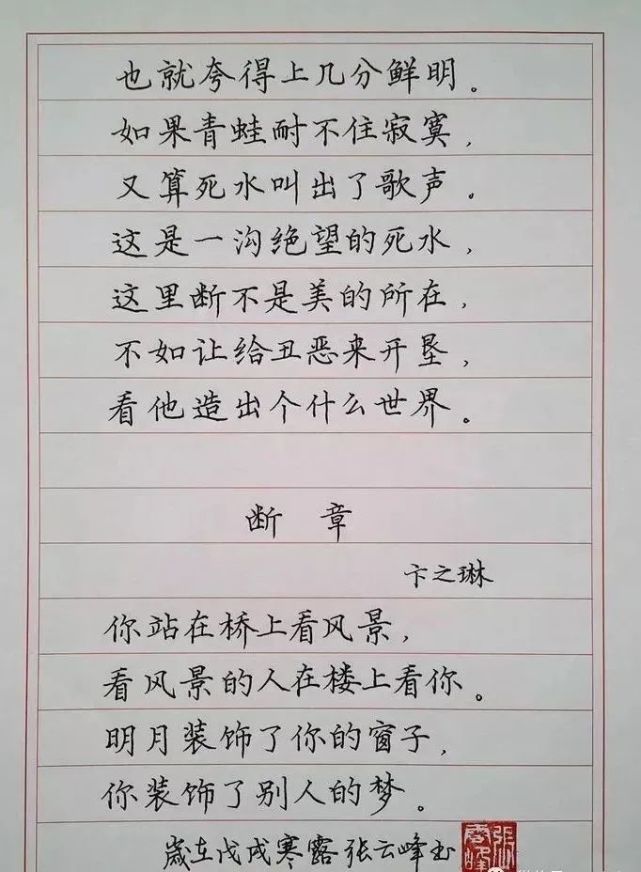 也就夸得上几分鲜明。
如果青蛙耐不住寂寞，
又算死水叫出了歌声。
这是一沟绝望的死水，
这里断不是美的所在，
不如让给丑恶来开垦，
看他造出个什么世界。
断 章
卞之琳
你站在桥上看风景，
看风景的人在楼上看你。
明月装饰了你的窗子，
你装饰了别人的梦。
歲在戊戌寒露张云峰书